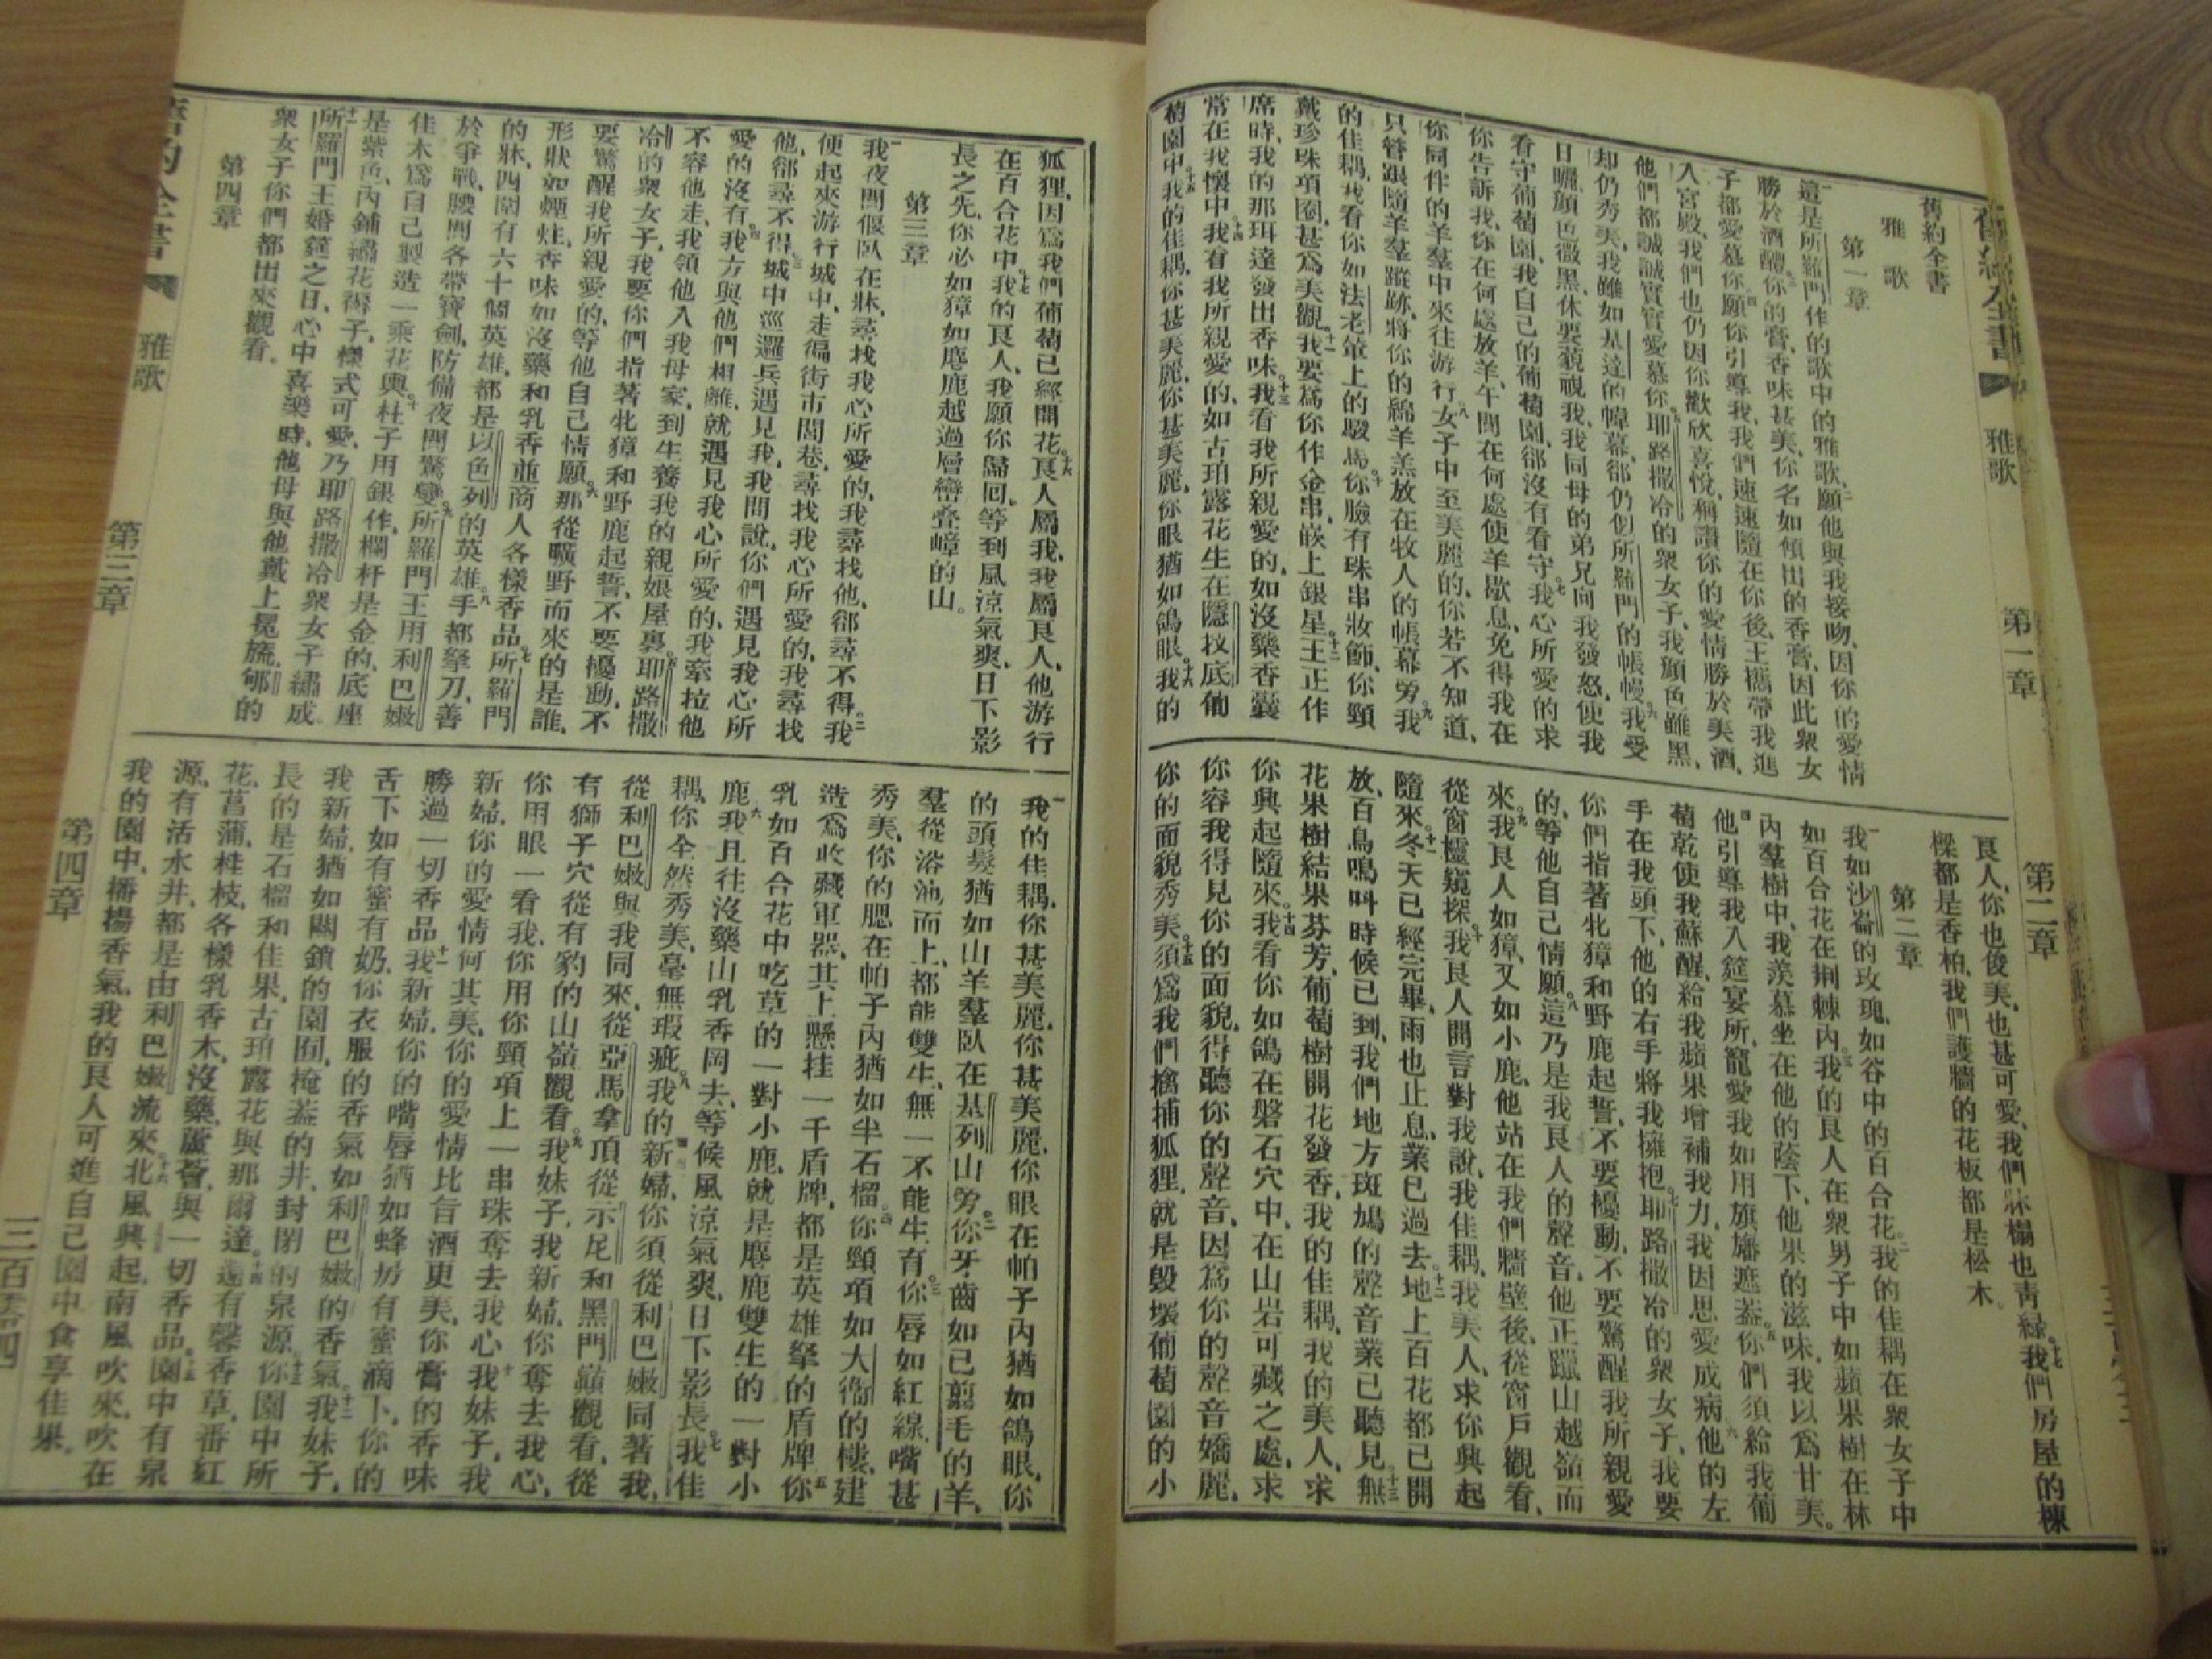 舊約全書
雅歌
第一章
這是所羅門作的歌中的雅歌、願他與我接吻、因你的愛情
勝於酒醴、你的膏香味甚美、你名如傾出的香膏、因此衆女
子都愛慕你、願你引導我、我們速速隨在你後、王攜帶我進
入宮殿、我們也仍因你歡欣喜悅、稱讚你的愛情勝於美酒、
他們都誠誠實實愛慕你、耶路撒冷的衆女子、我顏色雖黑、
却仍秀美、我雖如基達的幃幕、卻仍似所羅門的帳幔、我受
日曬、顏色微黑、休要藐視我、我同母的弟兄向我發怒、使我
看守葡萄園、我自己的葡萄園、卻沒有看守、我心所愛的求
你告訴我、你在何處放羊、午間在何處使羊歇息、免得我在
你同伴的羊羣中來往游行、女子中至美麗的、你若不知道、
只管跟隨羊羣蹤跡、將你的綿羊羔放在牧人的帳幕旁、我
的佳耦、我看你如法老輦上的駿馬、你臉有珠串妝飾、你頸
戴珍珠項圈、甚爲美觀、我要爲你作金串、嵌上銀星、王正作
席時、我的那珥達發出香味、我看我所親愛的、如沒藥香囊
常在我懷中、我看我所親愛的、如古珀露花生在隱技底葡
萄園中、我的佳耦、你甚美麗、你甚美麗、你眼猶如鴿眼、我的
良人、你也俊美、也甚可愛、我們牀榻也靑綠、我們房屋的棟
樑都是香柏、我們護牆的花板都是松木。
第二章
我如沙崙的玫瑰、如谷中的百合花、我的佳耦在衆女子中
如百合花在荆棘內、我的良人在衆男子中如蘋果樹在林
內羣樹中、我羨慕坐在他的蔭下、他果的滋味、我以爲甘美。
他引導我入筵宴所、寵愛我如用旗旛遮葢、你們須給我葡
萄乾使我蘇醒、給我蘋果增補我力、我因思愛成病、他的左
手在我頭下、他的右手將我擁抱、耶路撒冷的衆女子、我要
你們指著牝獐和野鹿起誓、不要擾動、不要驚醒我所親愛
的、等他自己情願、這乃是我良人的聲音、他正躐山越嶺而
來、我良人如獐、又如小鹿、他站在我們牆壁後、從窗戶觀看、
從窗櫺窺探、我良人開言對我說、我佳耦、我美人、求你興起
隨來、冬天已經完畢、雨也止息、業已過去、地上百花都已開
放、百鳥鳴叫時候已到、我們地方斑鳩的聲音業已聽見、無
花果樹結果芬芳、葡萄樹開花發香、我的佳耦、我的美人、求
你興起隨來、我看你如鴿在磐石穴中、在山岩可藏之處、求
你容我得見你的面貌、得聽你的聲音、因爲你的聲音嬌麗、
你的面貌秀美、須爲我們擒捕狐狸、就是毀壞葡萄園的小
舊約全書 雅歌 第一章 第二章
狐狸、因爲我們葡萄已經開花、良人屬我、我屬良人、他游行
在百合花中、我的良人、我願你歸回、等到風涼氣爽、日下影
長之先、你必如獐如麀鹿越過層巒叠嶂的山。
第三章
我夜間偃臥在牀、尋找我心所愛的、我尋找他、卻尋不得、我
便起來游行城中、走徧街市閭巷、尋找我心所愛的、我尋找
他、卻尋不得、城中巡邏兵遇見我、我問說、你們遇見我心所
愛的沒有、我方與他們相離、就遇見我心所愛的、我牽拉他
不容他走、我領他入我母家、到生養我的親娘屋裏、耶路撒
冷的衆女子、我要你們指著牝獐和野鹿起誓、不要擾動、不
要驚醒我所親愛的、等他自己情願、那從曠野而來的是誰、
形狀如煙炷、香味如沒藥和乳香並商人各樣香品、所羅門
的牀、四圍有六十個英雄、都是以色列的英雄、手都拏刀、善
於爭戰、腰間各帶寶劍、防備夜間驚變、所羅門王用利巴嫩
佳木爲自己製造一乘花輿、柱子用銀作、欄杆是金的、底座
是紫色、內鋪繡花褥子、樣式可愛、乃耶路撒冷衆女子繡成。
所羅門王婚筵之日、心中喜樂時、他母與他戴上冕旒、郇的
衆女子你們都出來觀看。
第四章
我的佳耦、你甚美麗、你甚美麗、你眼在帕子內猶如鴿眼、你
的頭髮猶如山羊羣臥在基列山旁、你牙齒如已翦毛的羊、
羣從浴池而上、都能雙生、無一不能生育、你唇如紅線、嘴甚
秀美、你的腮在帕子內猶如半石榴、你頸項如大衞的樓、建
造爲收藏軍器、其上懸挂一千盾牌、都是英雄拏的盾牌、你
乳如百合花中吃草的一對小鹿、就是麀鹿雙生的一對小
鹿、我且往沒藥山乳香岡去、等候風涼氣爽、日下影長、我佳
耦、你全然秀美、毫無瑕疵、我的新婦、你須從利巴嫩同著我、
從利巴嫩與我同來、從亞馬拿項從示尼和黑門巔觀看、從
有獅子穴從有豹的山嶺觀看、我妹子、我新婦、你奪去我心、
你用眼一看我、你用你頸項上一串珠奪去我心、我妹子、我
新婦、你的愛情何其美、你的愛情比旨酒更美、你膏的香味
勝過一切香品、我新婦、你的嘴唇猶如蜂房有蜜滴下、你的
舌下如有蜜有奶、你衣服的香氣如利巴嫩的香氣、我妹子、
我新婦、猶如關鎖的園囿、掩葢的井、封閉的泉源、你園中所
長的是石榴和佳果、古珀露花與那爾達、還有馨香草、番紅
花、菖蒲、桂枝、各樣乳香木、沒藥、蘆薈、與一切香品、園中有泉
源、有活水井、都是由利巴嫩流來、北風興起、南風吹來、吹在
我的園中、播揚香氣、我的良人可進自己園中、食享佳果。
舊約全書 雅歌 第三章 第四章 三百零四